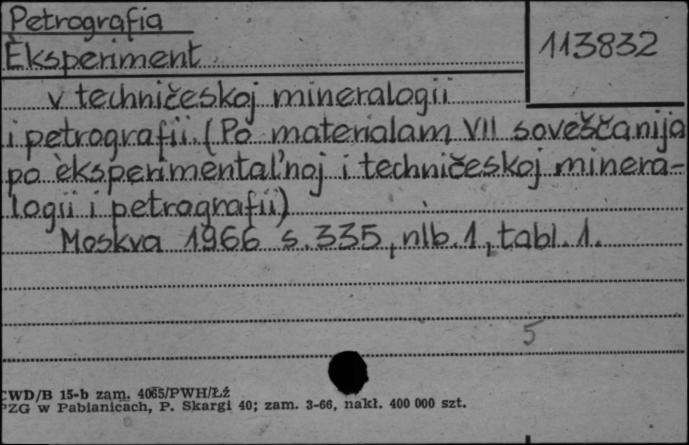 Petrografia
Èksperiment
113832
v techničeskoj mineralogii
i petrografii. (Po materialam VII soveščanija
po èksperimental'noj i techničeskoj minera-
logii i petrografii)
Moskva 1966 s. 335, nlb. 1, tabl. 1.
5
CWD/B 15-b zam. 4065/PWH/Łź
PZG w Pabianicach, P. Skargi 40; zam. 3-66, nakł. 400 000 szt.